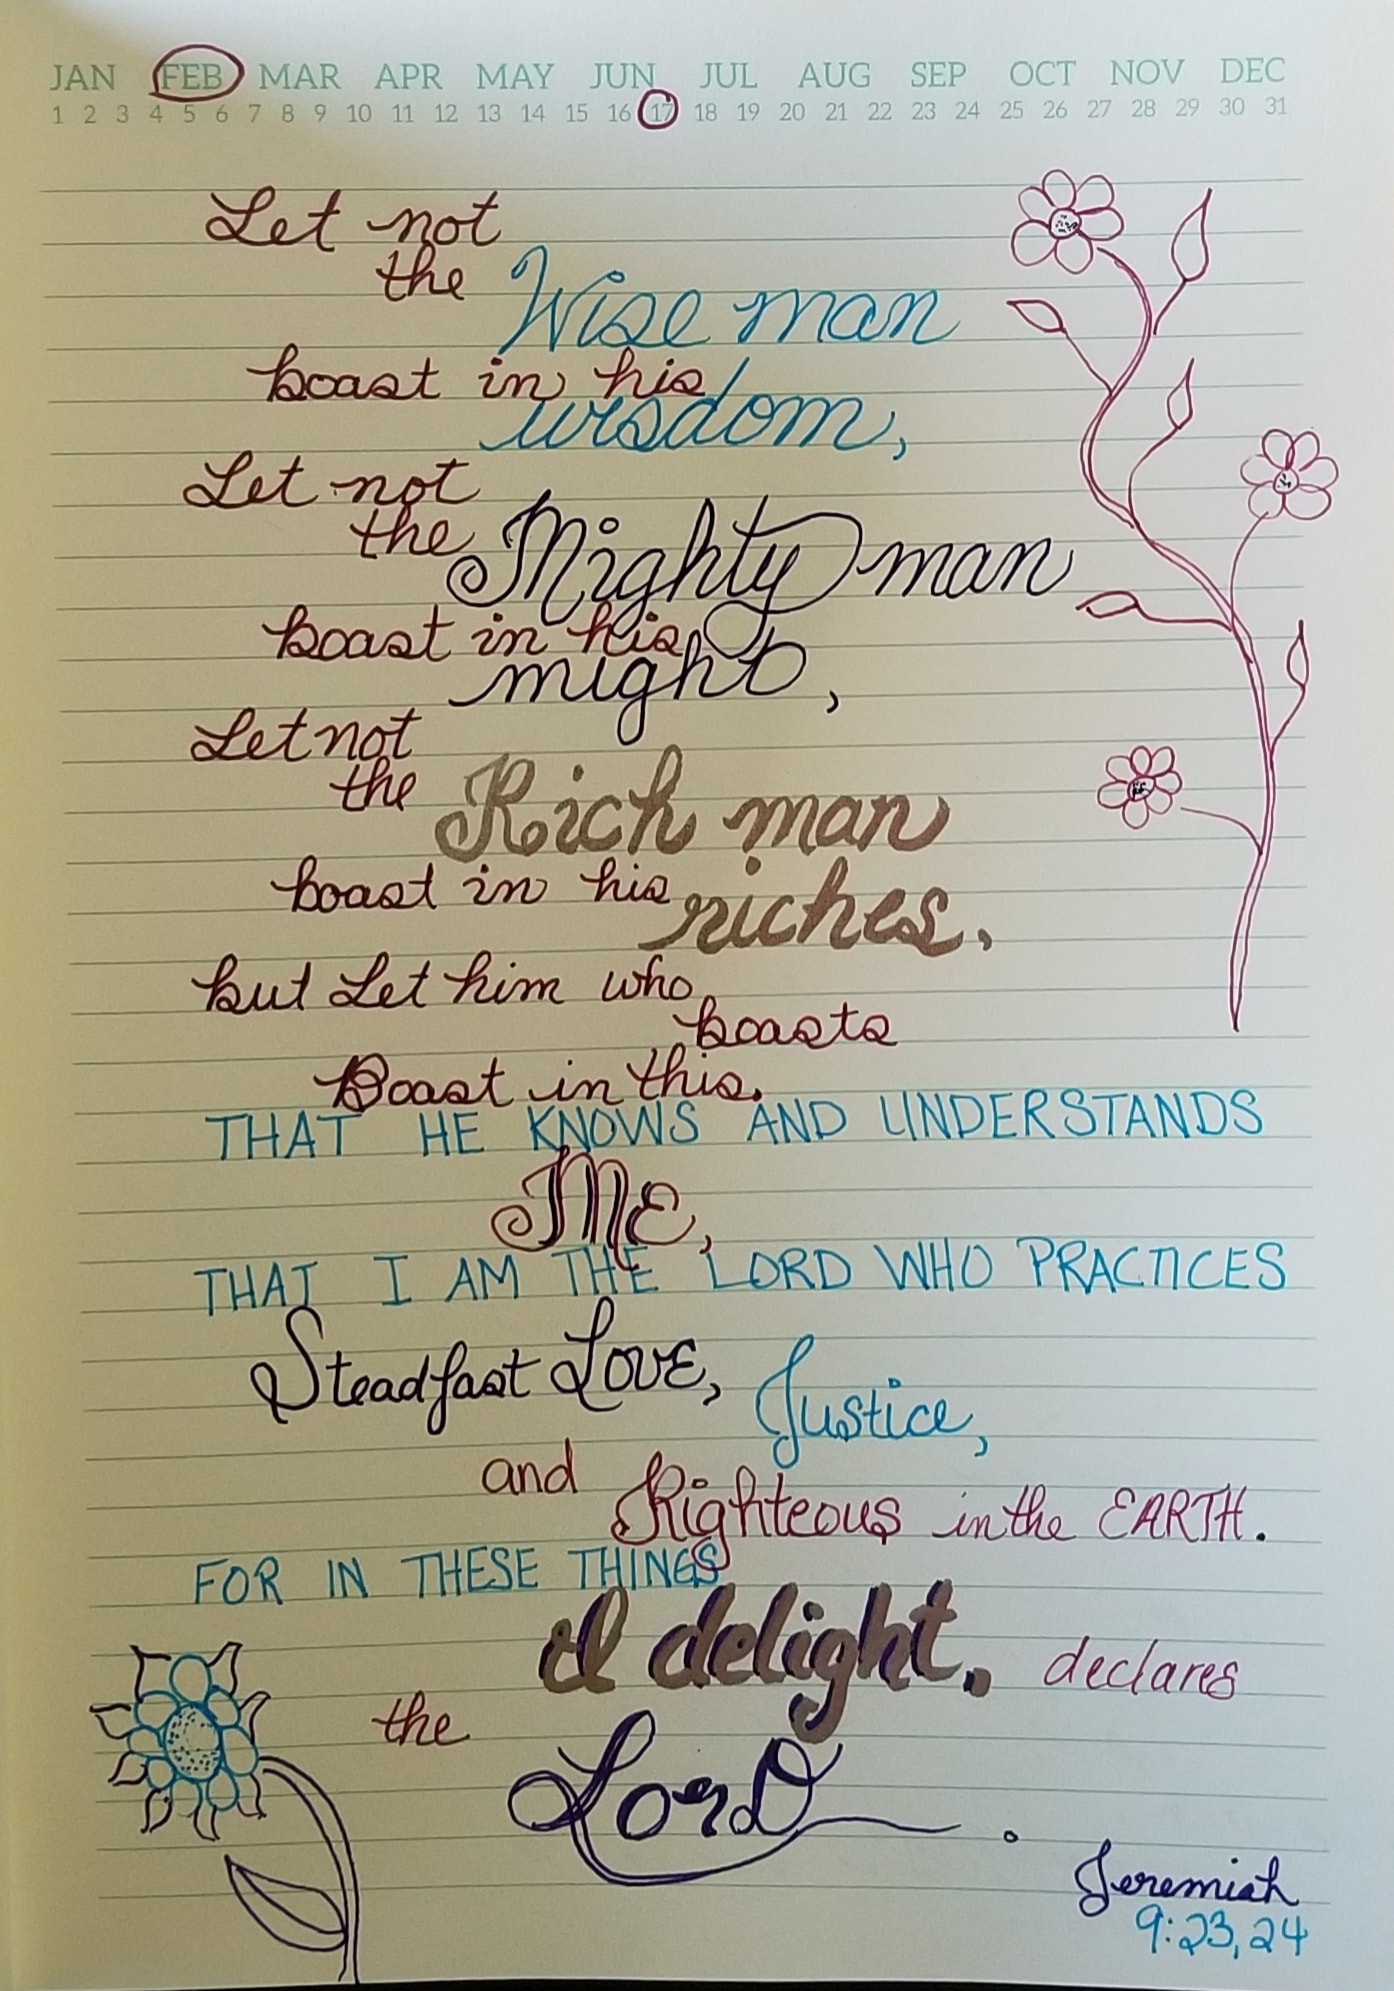 JAN FEB MAR APR MAY JUN JUL AUG SEP OCT NOV DEC
1 2 3 4 5 6 7 8 9 10 11 12 13 14 15 16 17 18 19 20 21 22 23 24 25 26 27 28 29 30 31
Let not
the Wise man
boast in his
wisdom,
Let not
the Mighty man
boast in his
might,
Let not
the Rich man
boast in his riches.
but Let him who
boasts
Boast in this.
THAT HE KNOWS AND UNDERSTANDS
ME,
THAT I AM THE LORD WHO PRACTICES
Steadfast Love, Justice,
and Righteous in the EARTH.
FOR IN THESE THINGS
I delight. declares
the Lord.
Jeremiah
9:23,24